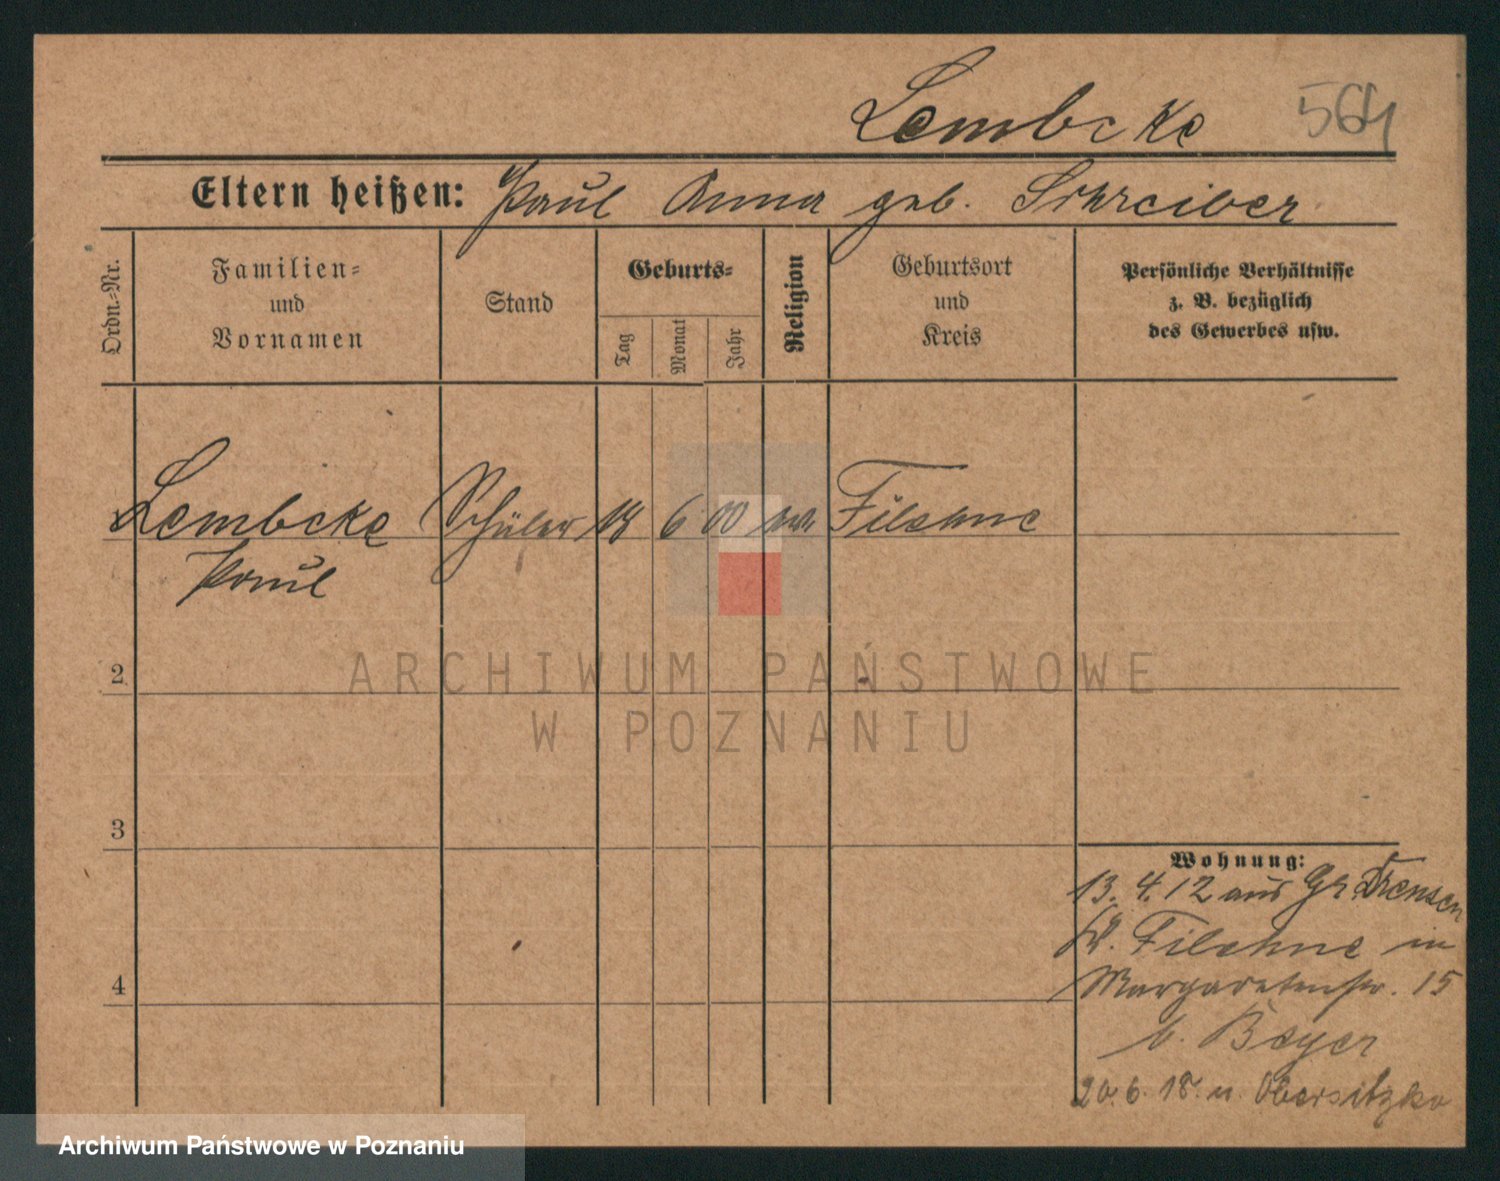 Lembcke 564
Eltern heißen: Paul Anna geb. Schreiber
Ordn.=Nr.
Familien=
und
Vornamen
Stand
Geburts=
Tag
Monat
Jahr
Religion
Geburtsort
und
Kreis
Persönliche Verhältnisse
z. B. bezüglich
des Gewerbes usw.
Lembcke Schüler 6 00 Filehne
Paul
2
3
4
ARCHIWUM PAŃSTWOWE
W POZNANIU
Wohnung:
13. 4. 12 aus Gr. Drensen
Filehne in
Margaretenstr. 15
b. Beyer
20. 6. 18. n. Obersitzko
Archiwum Państwowe w Poznaniu